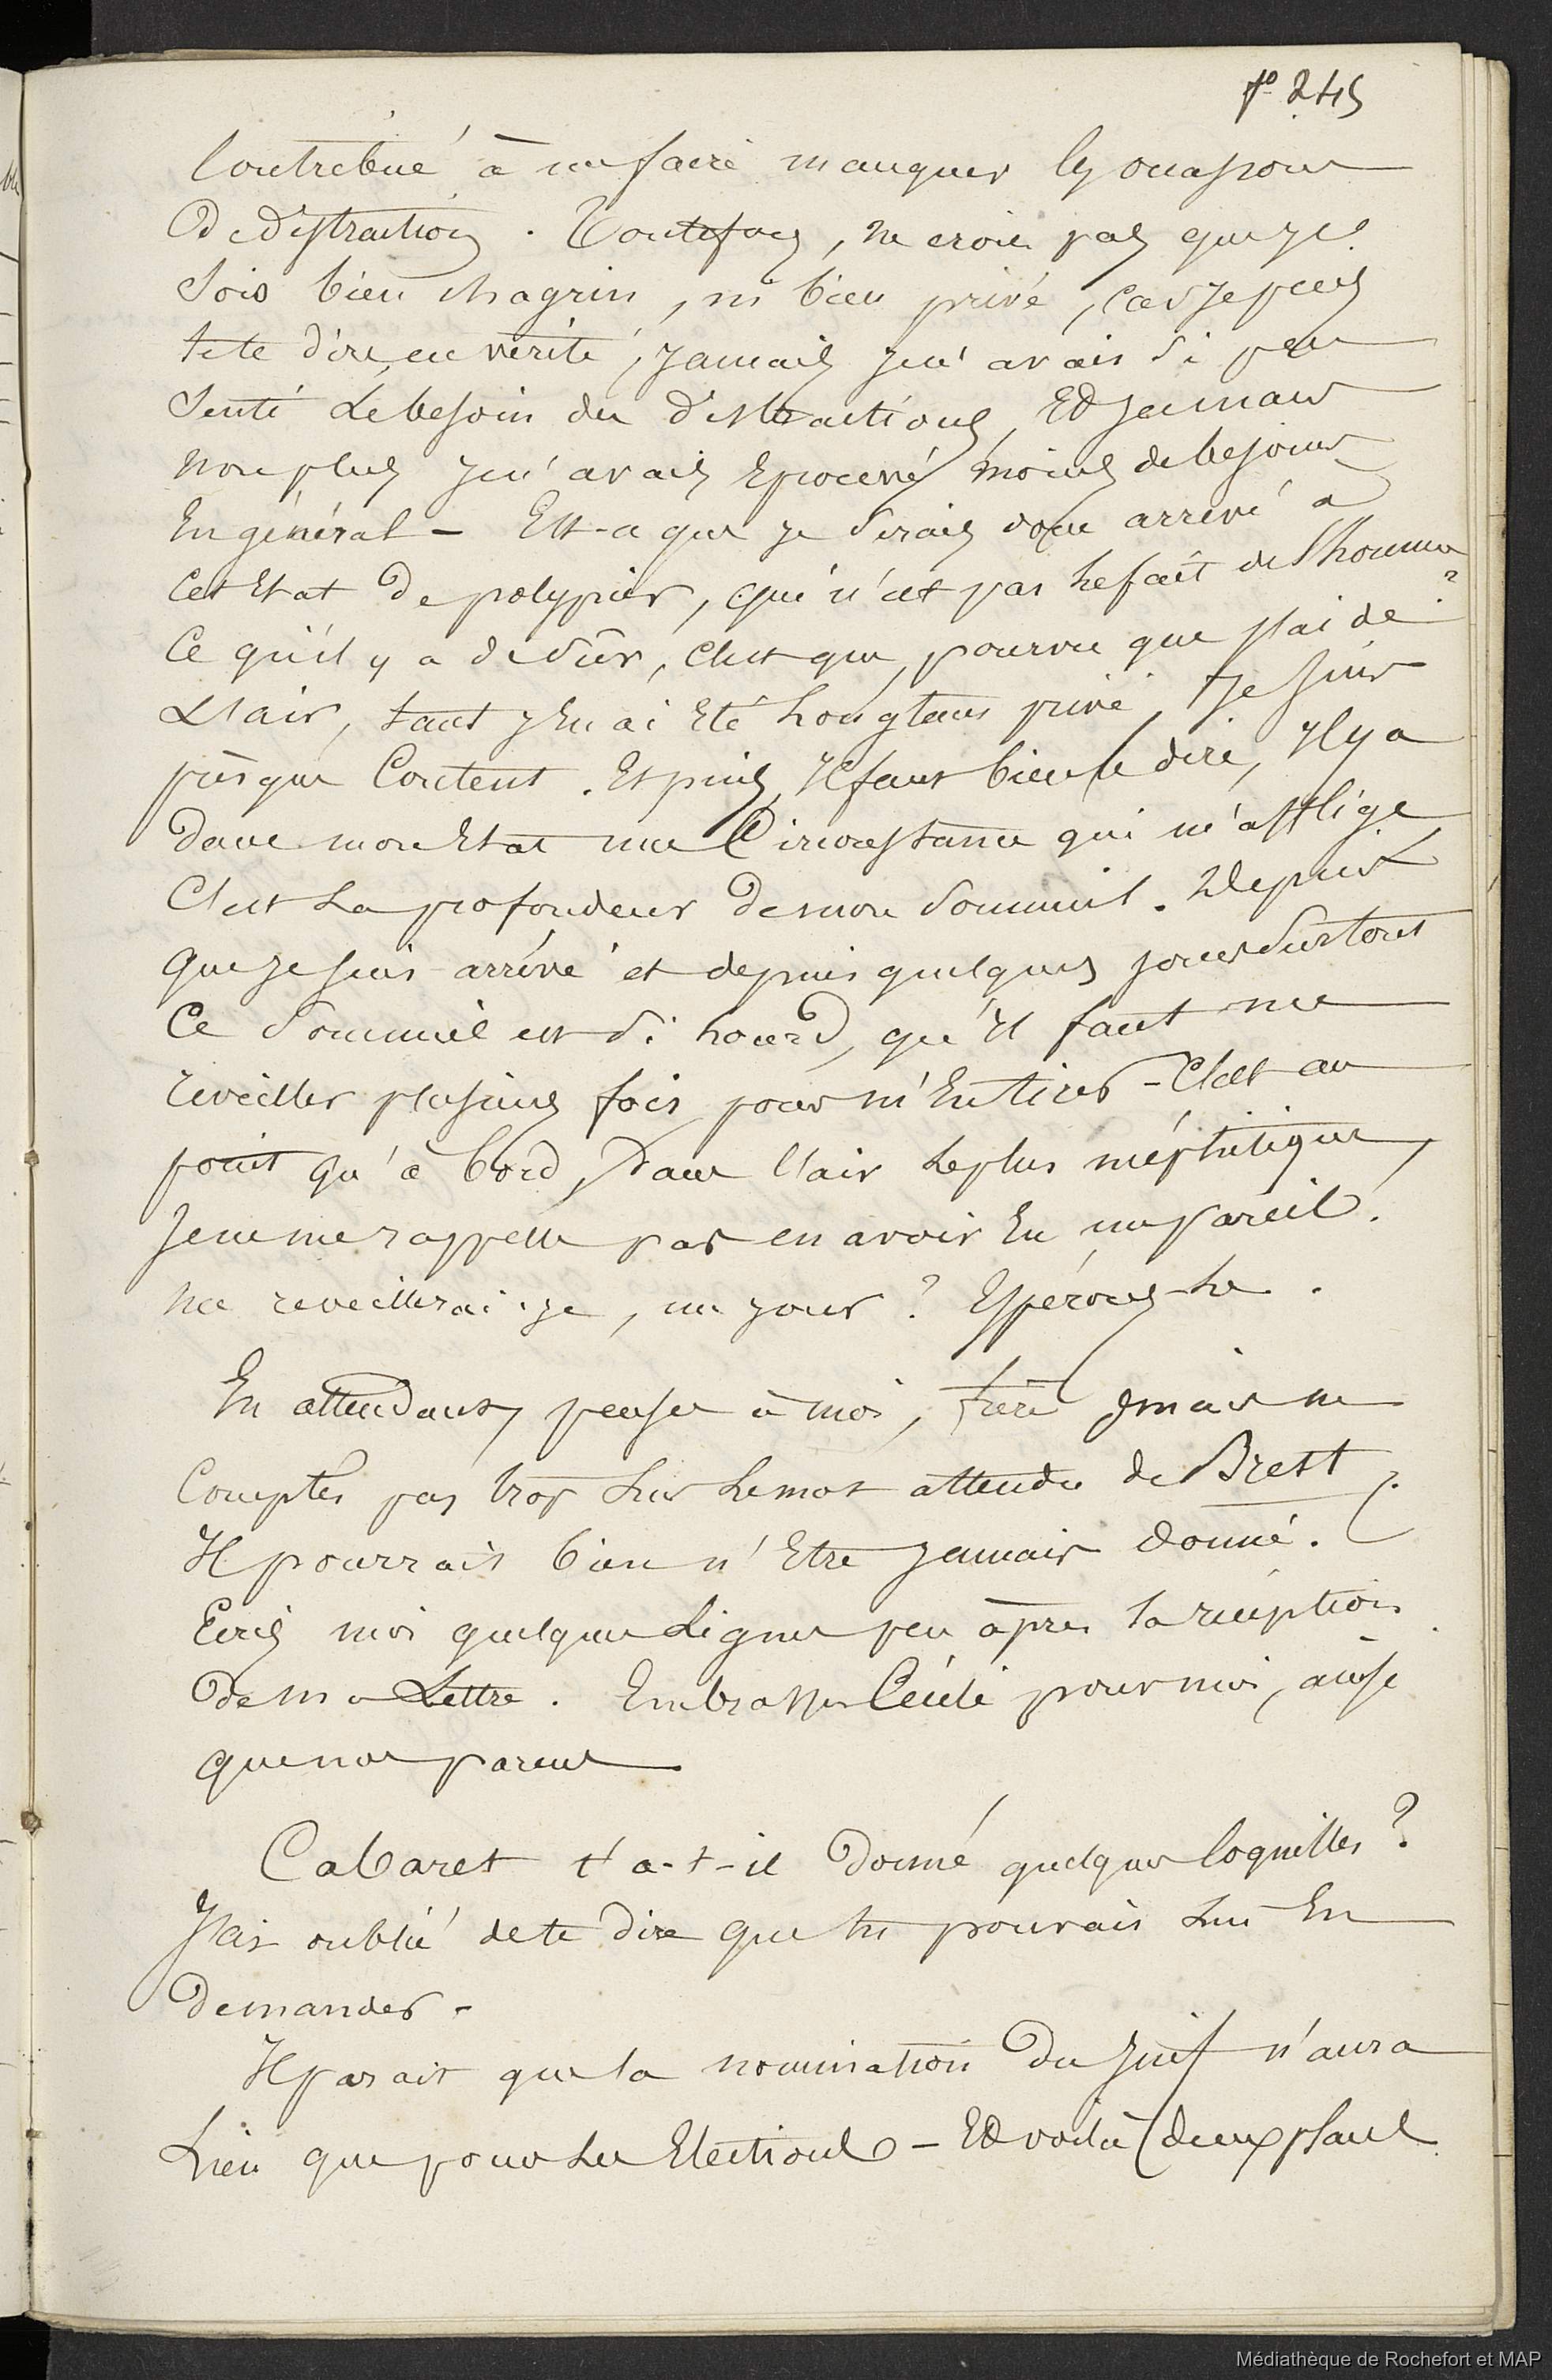 fo 245
Contribué à me faire manquer les occasions
De distraction. Toutefois, ne crois pas que je
Sois bien chagrin, ni bien privé, Car je puis
te le dire, en vérité, jamais je n'avais si peu
Senti Le besoin de distractions, Et jamais
Non plus je n'avais Eprouvé moins de besoins
En général - Est-ce que je Serais donc arrivé à
Cet Etat De polypier, qui n'est pas le fait de l'homme ?
Ce qu'il y a de Sûr, C'est que, pourvu que j'ai de
L'air, tant j'En ai Eté Longtems privé, Je suis
presque Content. Et puis, Il faut bien le dire, Il y a
Dans mon Etat une Circonstance qui m'afflige,
C'est La profondeur De mon Sommeil. Depuis
Que je suis arrivé et depuis quelques jours Surtout
Ce Sommeil est Si Lourd, qu'il faut me
réveiller plusieurs fois pour m'En tirer - C'est au
point qu'à bord, Dans l'air le plus méphitique,
Je ne me rappelle pas en avoir Eu un pareil.
Me réveillerai-je, un jour ? Espérons-Le.
En attendant, pense à moi, frère mais ne
Comptes pas trop Sur Le mot attendu de Brest,
Il pourrait bien n'Etre jamais donné.
Ecris moi quelques Lignes peu après la réception
De ma Lettre. Embrasses Cécile pour moi, ainsi
que nos parens
Cabaret t'a-t-il Donné quelques Coquilles ?
J'ai oublié de te Dire Que tu pouvais Lui En
Demander -
Il parait que la nomination Du Juif n'aura
Lieu que pour Les Elections - Et voilà deux plans
Médiathèque de Rochefort et MAP